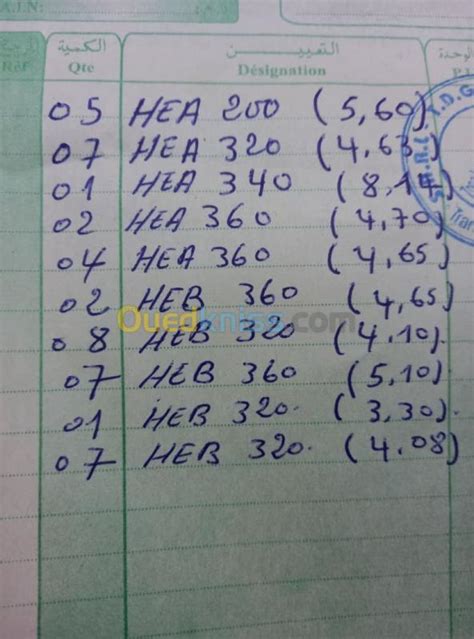 A.I.N:
الكمية
التعييـــــــن
Qte
Désignation
05 HEA 200 (5,60)
07 HEA 320 (4,65)
01 HEA 340 (8,14)
02 HEA 360 (4,70)
04 HEA 360 (4,65)
02 HEB 360 (4,65)
Ouedkniss.com
08 HEB 320 (4,10).
07 HEB 360 (5,10).
01 HEB 320. (3,30).
07 HEB 320. (4.08)